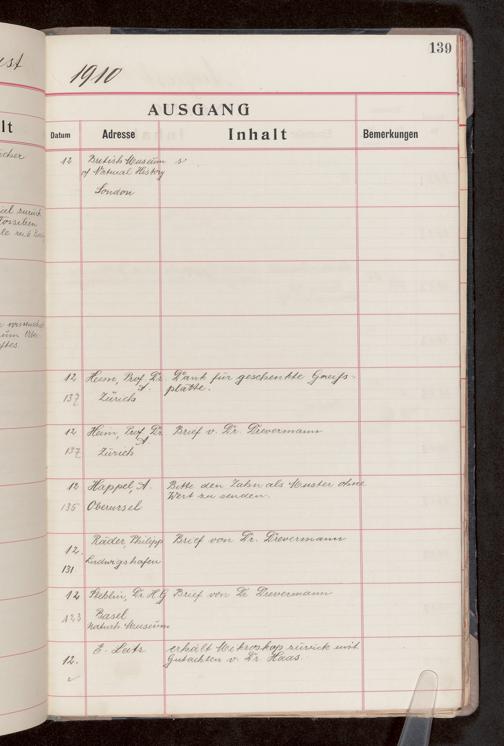 139
1910
AUSGANG
Datum Adresse Inhalt Bemerkungen
12 British Museum
of Natural History
London
12 Heim, Prof. Dr. Dank für geschenkte
A. platte.
137 Zürich
12 Heim, Prof. Dr. Brief v. Dr. Drevermann
A.
137 Zürich
12 Happel, A. Bitte den Zahn als Muster ohne
Wert zu senden.
135 Oberursel
Räder, Philipp Brief von Dr. Drevermann
12.
131 Ludwigshafen
12 Stehlin, Dr. H.G. Brief von Dr Drevermann
123 Basel
Naturh. Museum
E. Leitz erhält Mikroskop zurück mit
12. Gutachten v. Dr. Haas.